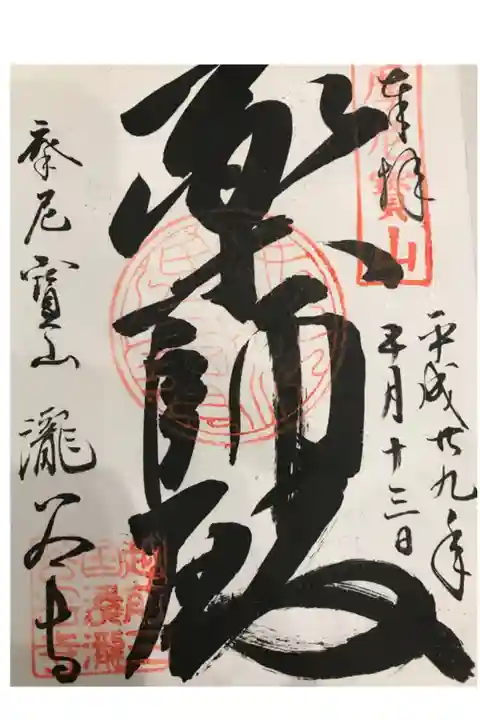 奉拝
平成廿九年
五月十三日
薬師殿
摩尼寶山 瀧谷寺
摩尼寶山
越前三国瀧谷寺